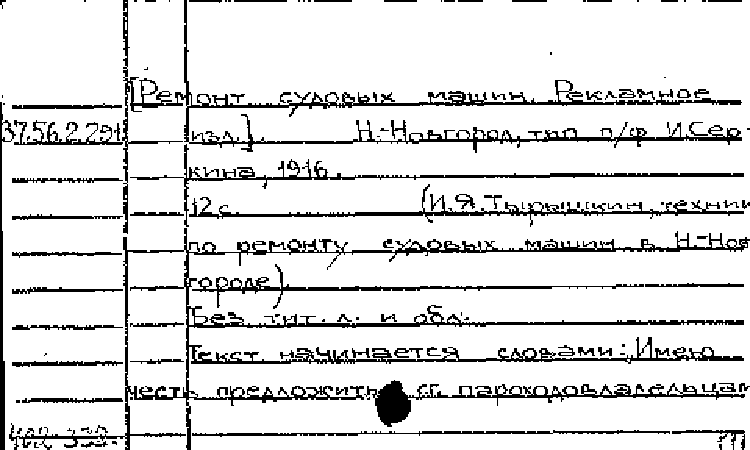 [Ремонт судовых машин. Рекламное
37.56.2.291 изд.]. Н.-Новгород, тип п/ф И.Сер-
кина, 1916.
12 с. (И.Я.Тырышкин, техник
по ремонту судовых машин в Н.-Нов
городе)
Без тит. л. и обл.
Текст начинается словами: „Имею
честь предложить гг. пароходовладельцам